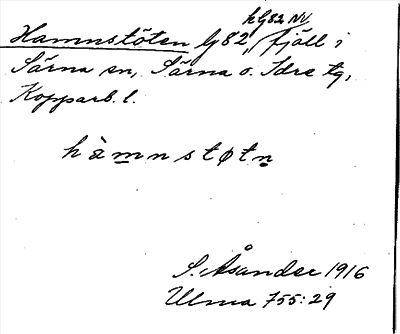 kG82 NV
Hamnstöten G82, fjäll i
Särna sn, Särna o. Idre tg,
Kopparb. l.
hàmnstøtn
S. Åsander 1916
Ulma 755:29